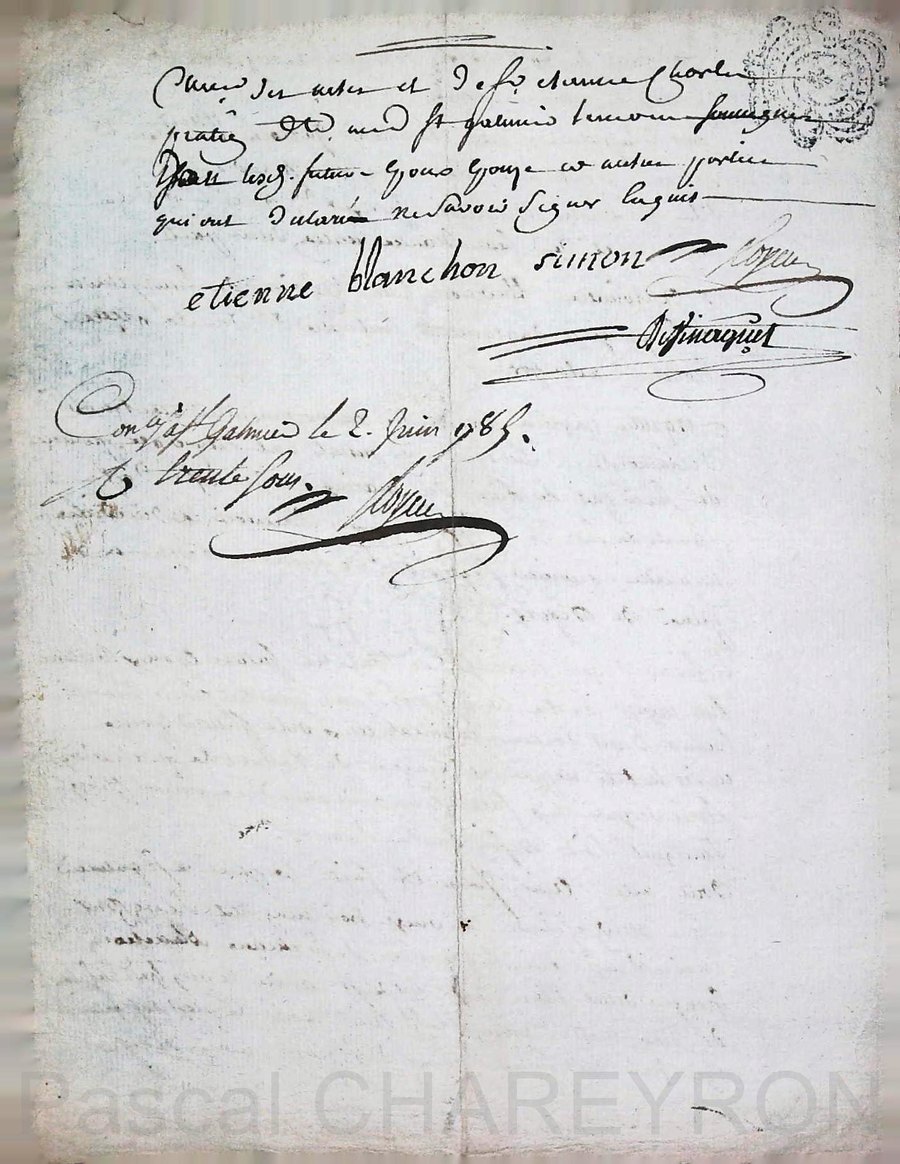 Curé des actes et de Sr. etienne Charle
pratiq. dt. St galmier temoins soussignés
non lesd. futurs Epoux Epouse et autres parties
qui ont declaré ne Savoir Signer Enquis
etienne blanchon simon
Con.lé à St Galmier le 2. Juin 1785.
R trente Sous.
Pascal CHAREYRON